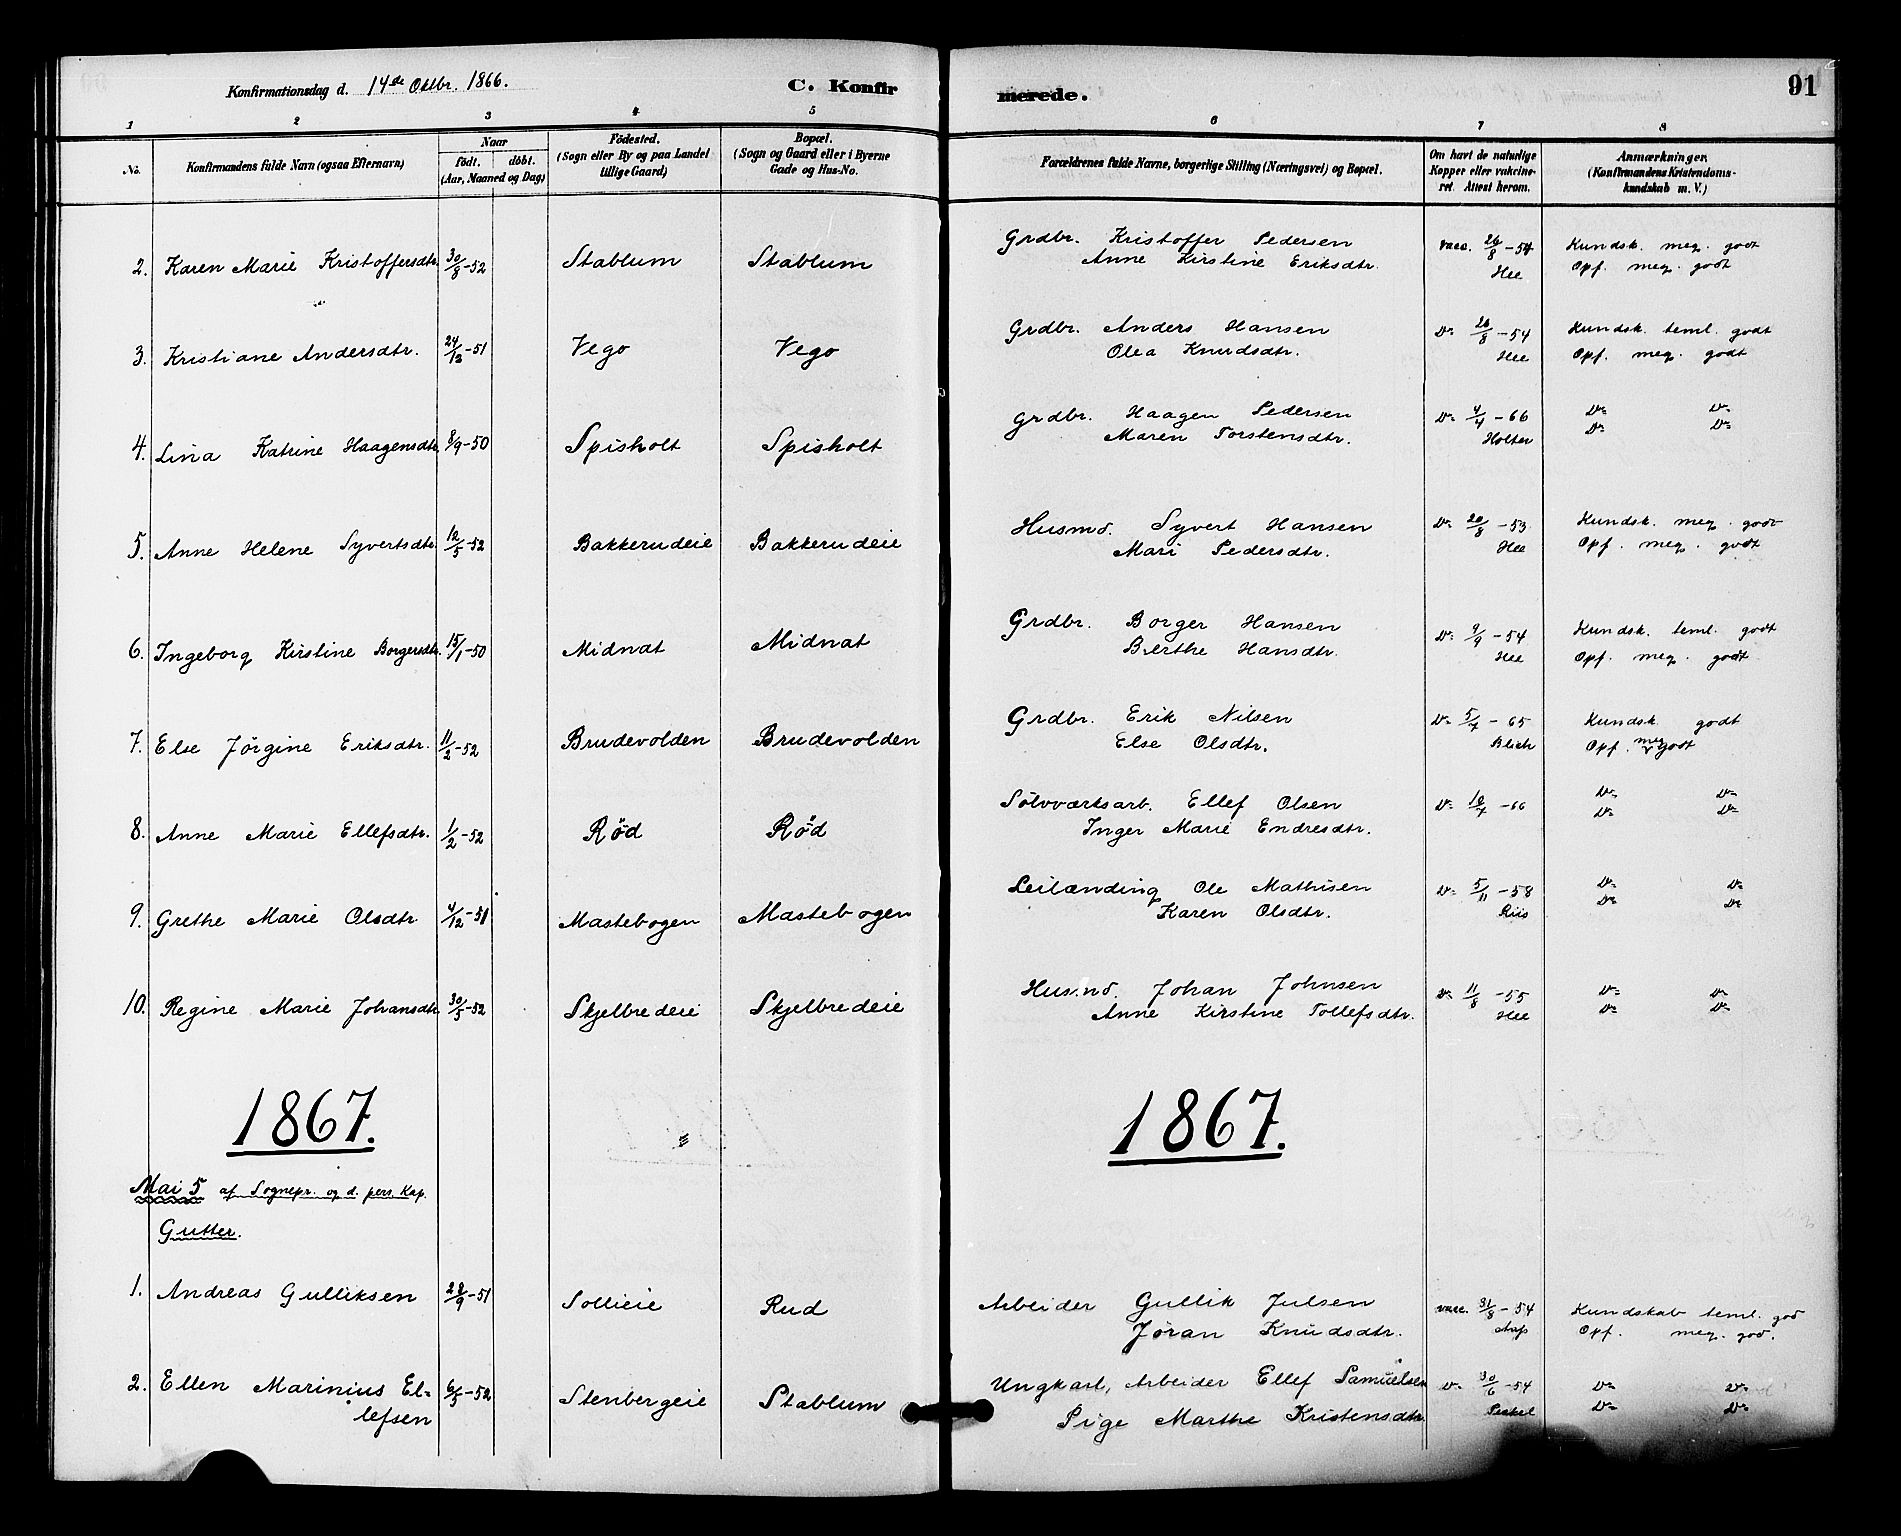 Konfirmationsdag d. 14de Oktbr. 1866.
C. Konfirmerede.
91
1 2 3 4 5 6 7 8
No.
Konfirmandens fulde Navn (ogsaa Efternavn)
Naar
födt. döbt.
(Aar, Maaned og Dag)
Födested.
(Sogn eller By og paa Landet
tillige Gaard)
Bopæl.
(Sogn og Gaard eller i Byerne
Gade og Hus-No.
Forældrenes fulde Navne, borgerlige Stilling (Næringsvei) og Bopæl.
Om havt de naturlige
Kopper eller vakcine-
ret. Attest herom.
Anmærkninger.
(Konfirmandens Kristendoms-
kundskab m. V.)
2. Karen Marie Kristoffersdtr. 30/8-52 Stablum Stablum Grdbr. Kristoffer Pedersen vacc. 26/8-54 Kundsk. meg. godt
Anne Kirstine Eriksdtr. Hee Opf. meg. godt
3. Kristiane Andersdtr. 24/12-51 Vego Vego Grdbr. Anders Hansen Do 26/8-54 Kundsk. teml. godt
Olea Knudsdtr. Hee Opf. meg. godt
4. Lina Katrine Haagensdtr. 8/9-50 Spisholt Spisholt Grdbr. Haagen Pedersen Do 4/4-66 Do Do
Maren Torstensdtr. Holter Do Do
5. Anne Helene Syvertsdtr. 12/5-52 Bakkerudeie Bakkerudeie Husmd. Syvert Hansen Do 20/8-53 Kundsk. meg. godt
Mari Pedersdtr. Hee Opf. meg. godt
6. Ingeborg Kirstine Borgersdtr. 15/1-50 Midnat Midnat Grdbr. Borger Hansen Do 9/9-54 Kundsk. teml. godt
Berthe Hansdtr. Hee Opf. meg. godt
7. Else Jörgine Eriksdtr. 11/2-52 Brudevolden Brudevolden Grdbr. Erik Nilsen Do 5/7-65 Kundsk. godt
Else Olsdtr. Blich Opf. meg godt
8. Anne Marie Ellefsdtr. 1/2-52 Rød Rød Sölvværksarb. Ellef Olsen Do 10/7-66 Do Do
Inger Marie Endresdtr. Do Do
9. Grethe Marie Olsdtr 4/12-51 Mastebogen Mastebogen Leilænding Ole Mathisen Do 5/11-58 Do Do
Karen Olsdtr. Riis Do Do
10. Regine Marie Johansdtr. 30/5-52 Skjelbredeie Skjelbredeie Husmd. Johan Johnsen Do 11/8-55 Do Do
Anne Kirstine Tollefsdtr. Hee Do Do
1867. 1867.
Mai 5 af Sognepr. og d. pers. Kap.
Gutter.
1. Andreas Gulliksen 28/9-51 Sollieie Rud Arbeider Gullik Julsen vacc. 31/8-54 Kundskab teml. god
Jøran Knudsdtr. Opf. meg. god.
2. Ellen Marinius El= 6/5-52 Stenbergeie Stablum Ungkarl, Arbeider Ellef Samuelsen Do 30/6-54 Do Do
lefsen Pige Marthe Kristensdtr Do Do